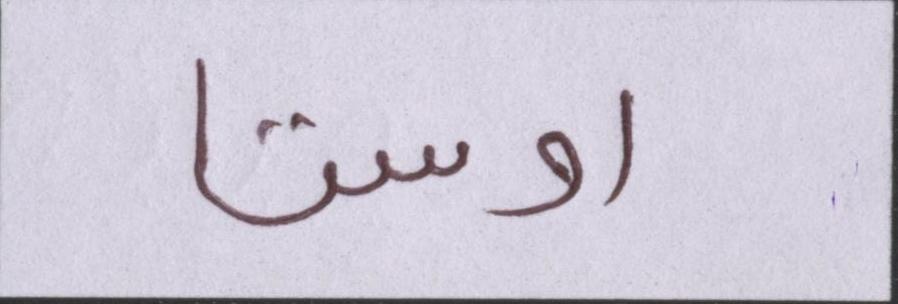 اوستا